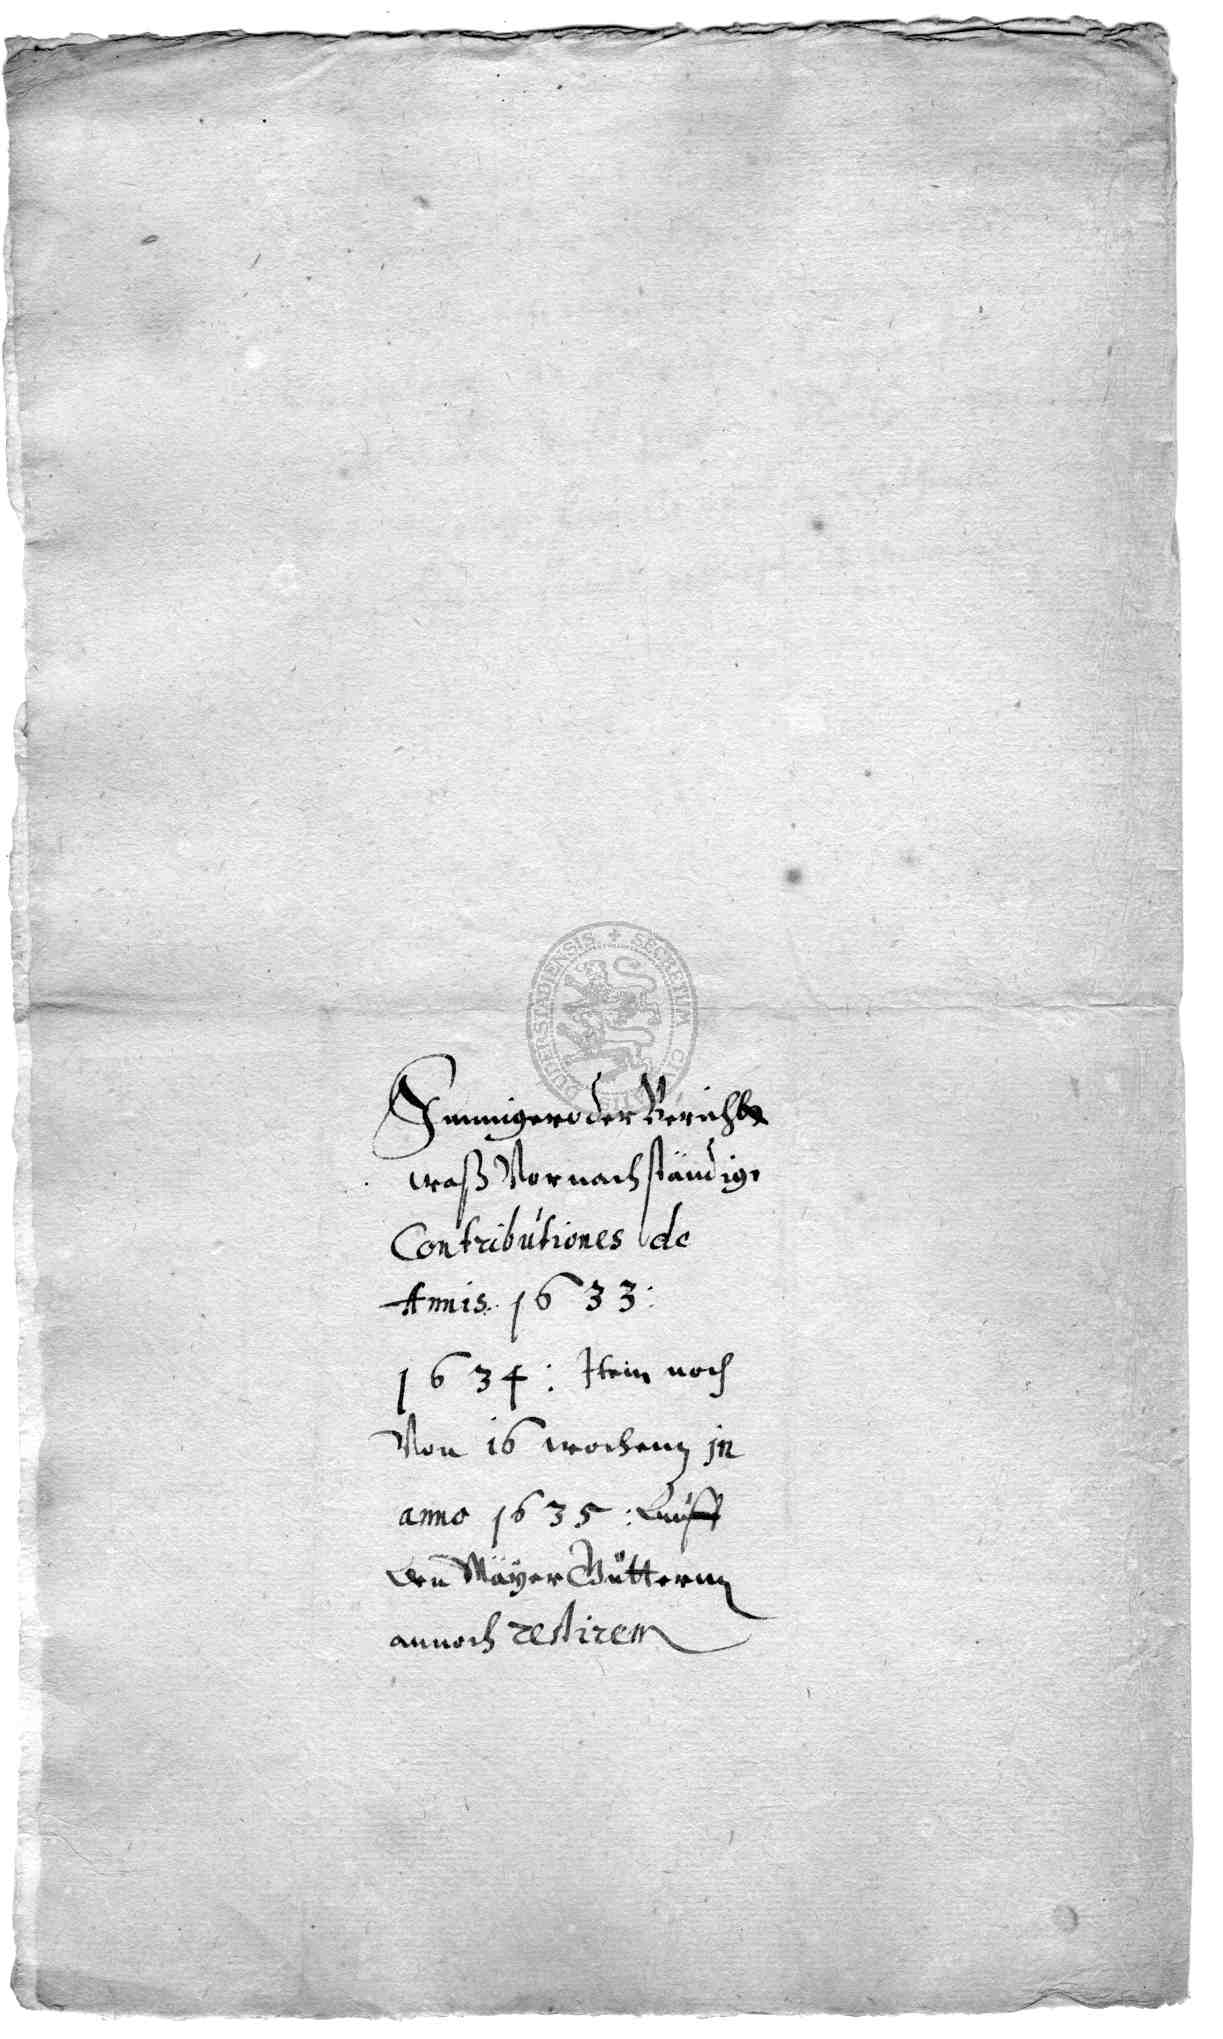 SECRETUM
DUDERSTADIENSIS
Immigeroder Bericht
waß Vor nachständige
Contributiones de
Annis 1633:
1634: Item noch
Von 16 wochenn in
anno 1635: Auff
den Mäyer Güttern
annoch restiren